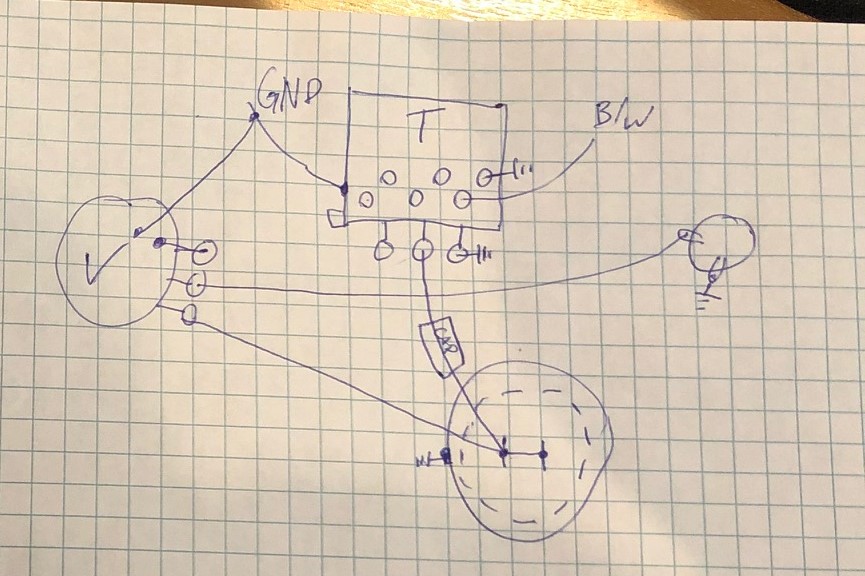 GND
T
B/W
V
CAP